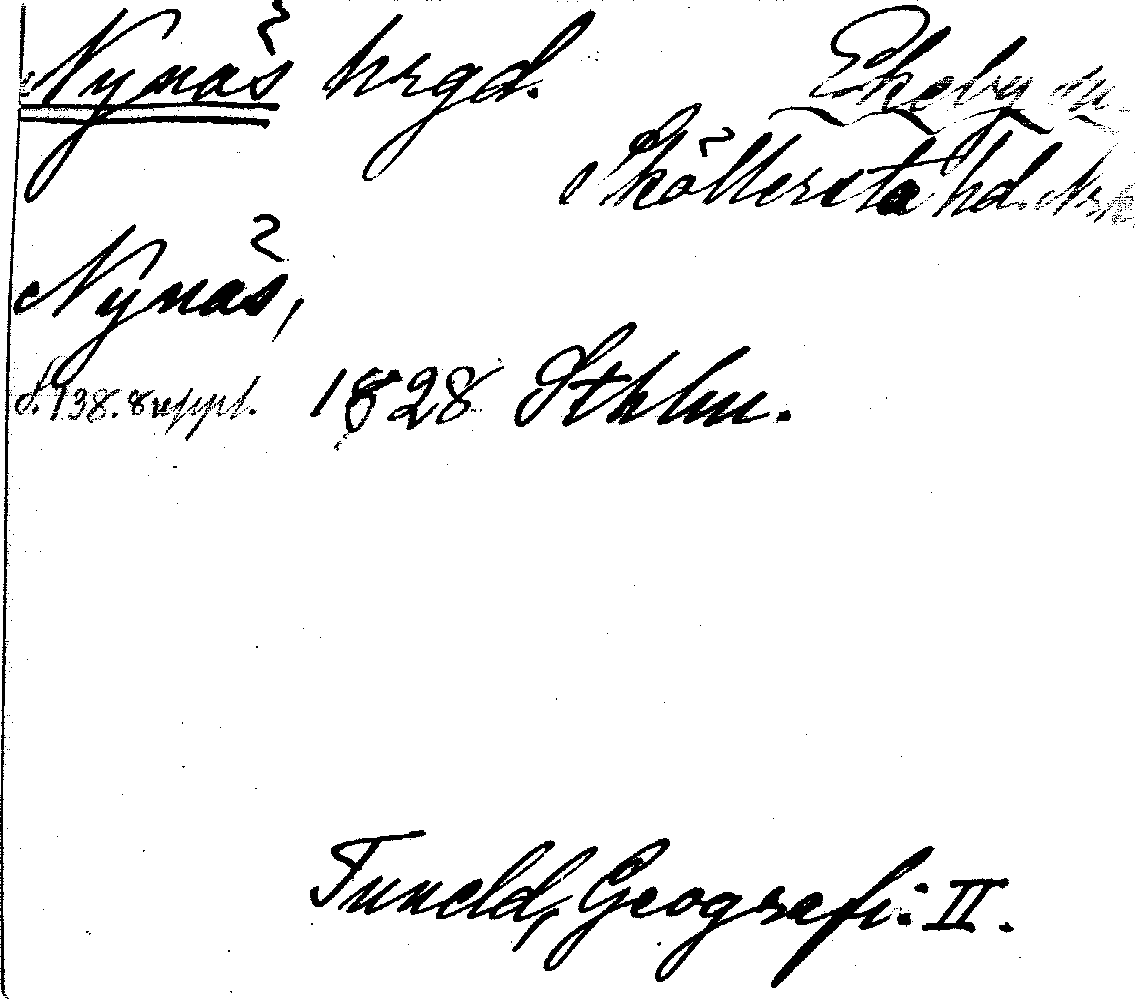 Nynäs hrgd. Ekeby sn
Sköllersta hd. Nrk.
Nynäs,
s. 138. suppl. 1828 Sthlm.
Tuneld, Geografi. II.